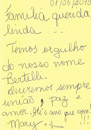 01/05/2013
Família querida
linda...
Temos orgulho
do nosso nome
Bertelli.
Queremos sempre
união, paz e
amor. Até o ano que vem!!!
Mary